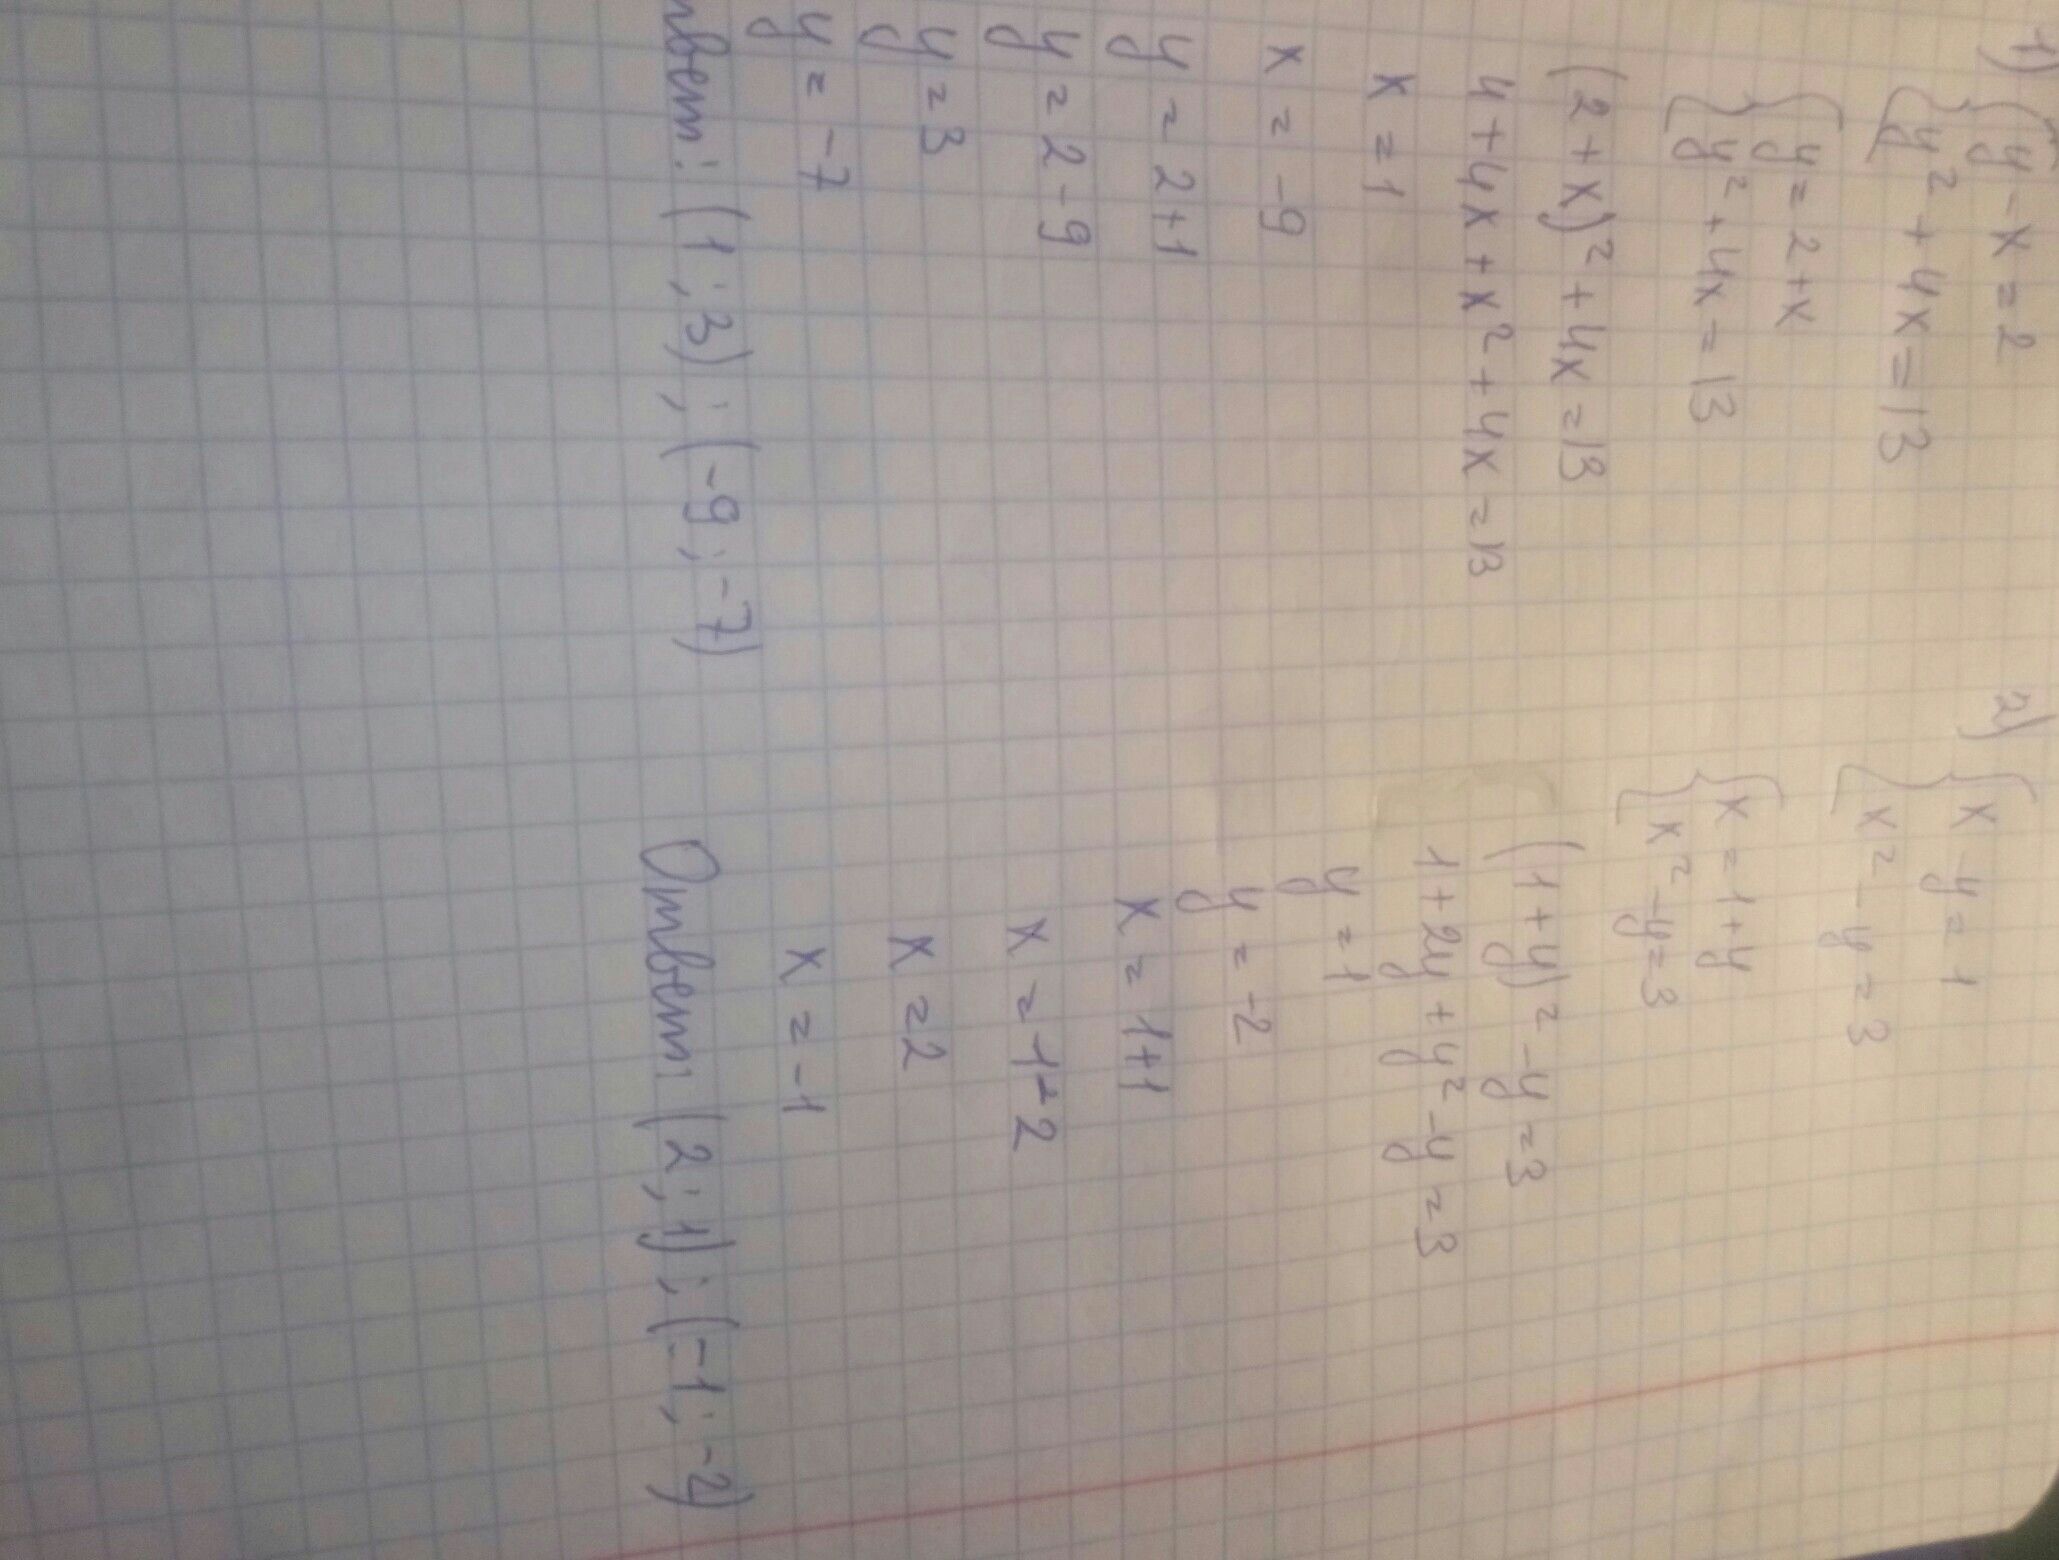 1) { y - x = 2
{ y² + 4x = 13
{ y = 2 + x
{ y² + 4x = 13
(2 + x)² + 4x = 13
4 + 4x + x² + 4x = 13
x = 1
x = -9
y = 2 + 1
y = 2 - 9
y = 3
y = -7
твет: (1 ; 3) ; (-9 ; -7)
2) { x - y = 1
{ x² - y = 3
{ x = 1 + y
{ x² - y = 3
(1 + y)² - y = 3
1 + 2y + y² - y = 3
y = 1
y = -2
x = 1 + 1
x = 1 - 2
x = 2
x = -1
Ответ: (2 ; 1) ; (-1 ; -2)